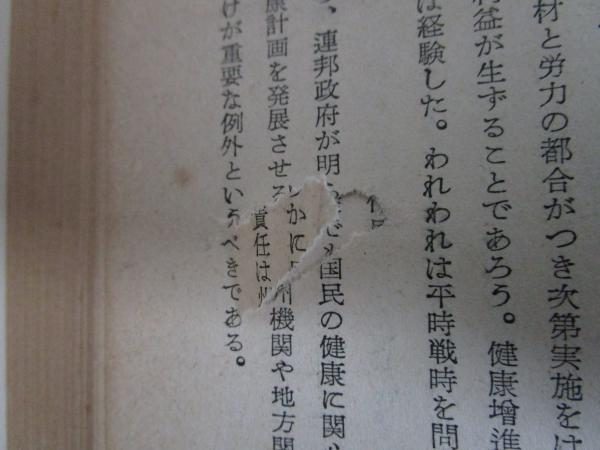 材と労力の都合がつき次第実施をは
利益が生ずることであろう。健康増進
は経験した。われわれは平時戦時を問
、連邦政府が明 国民の健康に関
康計画を発展させ かに 機関や地方関
責任は州
けが重要な例外というべきである。